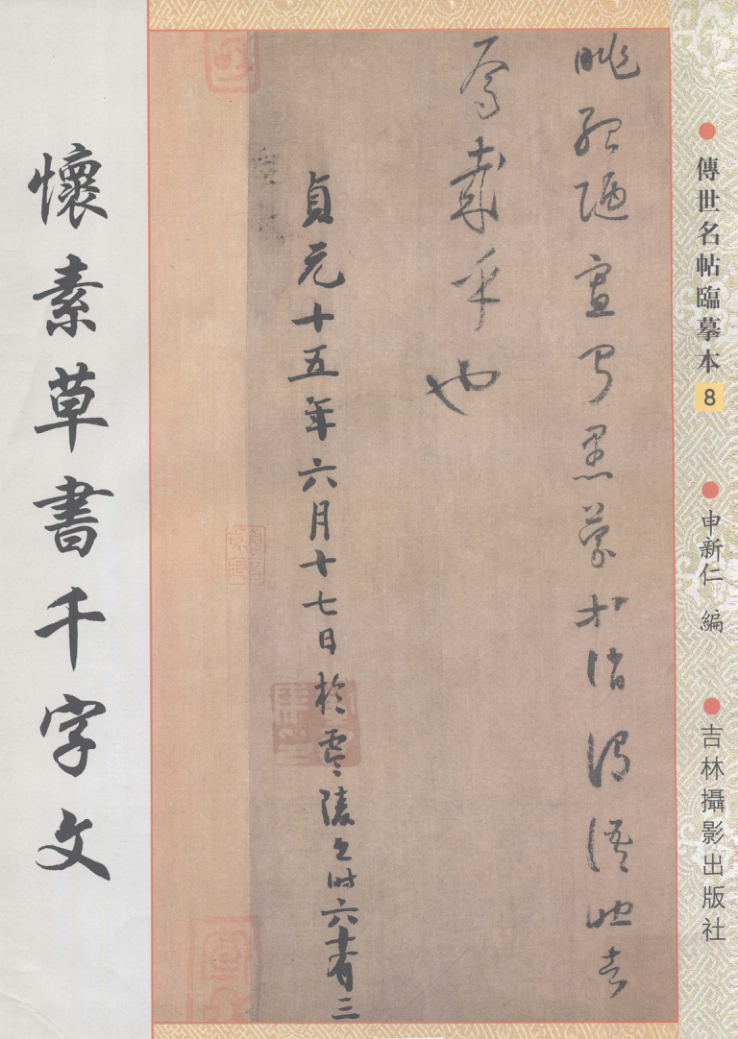 傳世名帖臨摹本 8
申新仁 編
吉林攝影出版社
眺孤陋寡聞愚蒙等誚謂語助者
焉哉乎也
貞元十五年六月十七日於零陵書時六十有三
懷素草書千字文